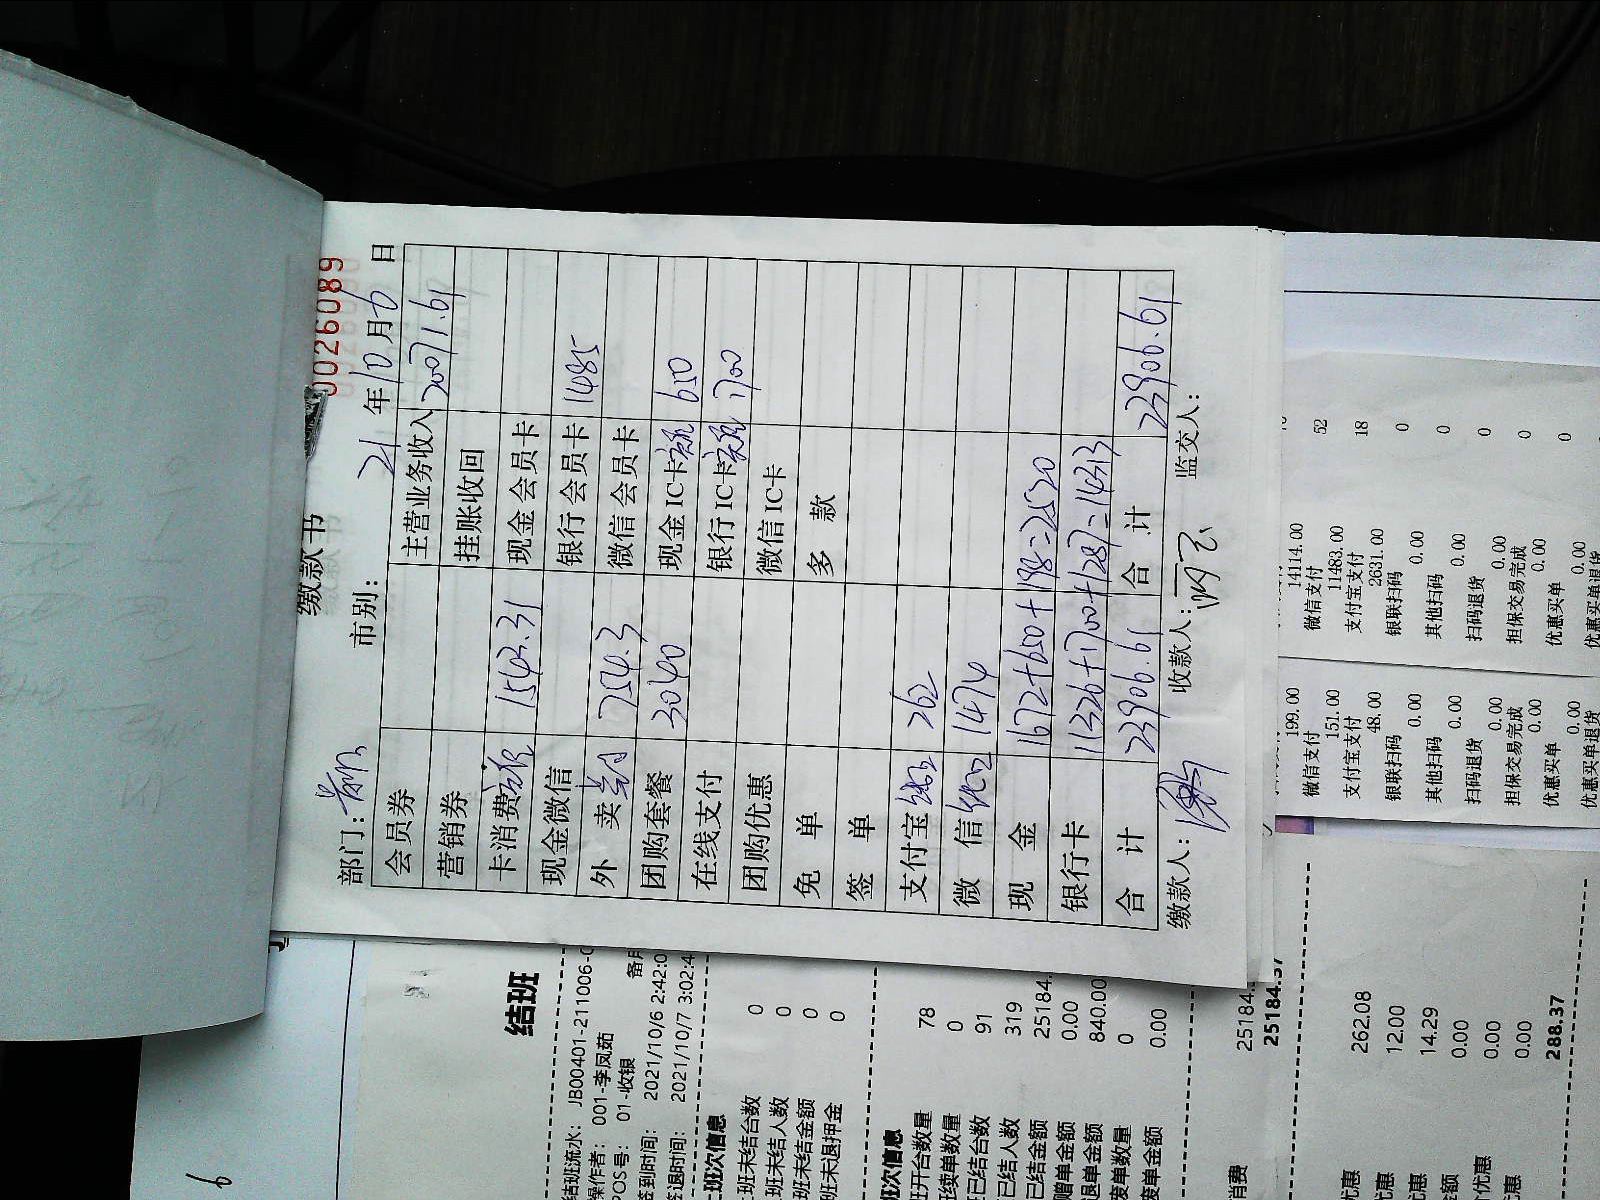 缴款书
0026089
部门：
市别：
21年10月6日
会员券 主营业务收入 20071.61
营销券 挂账收回
卡消费 1543.31 现金会员卡
现金微信 银行会员卡 1485
外卖 754.3 微信会员卡
团购套餐 3040 现金IC卡 650
在线支付 银行IC卡 1700
团购优惠 微信IC卡
免单 多款
签单
支付宝 262
微信 1474
现金 1672+650+198=2520
银行卡 11326+1700+1287=14313
合计 23906.61 合计 23906.61
缴款人：
收款人：
监交人：
结班
结班流水： JB00401-211006-0
操作者： 001-李凤茹
POS号： 01-收银
签到时间： 2021/10/6 2:42:0
签退时间： 2021/10/7 3:02:4
班次信息
班未结台数 0
班未结人数 0
班未结金额 0
班未退押金 0
班次信息
班开台数量 78
班续单数量 0
已结台数 91
已结人数 319
已结金额 25184.
赠单金额 0.00
退单金额 840.00
废单数量 0
废单金额 0.00
消费 25184.
25184.37
优惠 262.08
优惠 12.00
优惠 14.29
金额 0.00
价优惠 0.00
优惠 0.00
288.37
199.00
微信支付
151.00
支付宝支付
48.00
银联扫码
0.00
其他扫码
0.00
扫码退货
0.00
担保交易完成
0.00
优惠买单
0.00
优惠买单退货
14114.00
微信支付
52
11483.00
支付宝支付
18
2631.00
银联扫码
0
0.00
其他扫码
0
0.00
扫码退货
0
0.00
担保交易完成
0
0.00
优惠买单
0
0.00
优惠买单退货
6